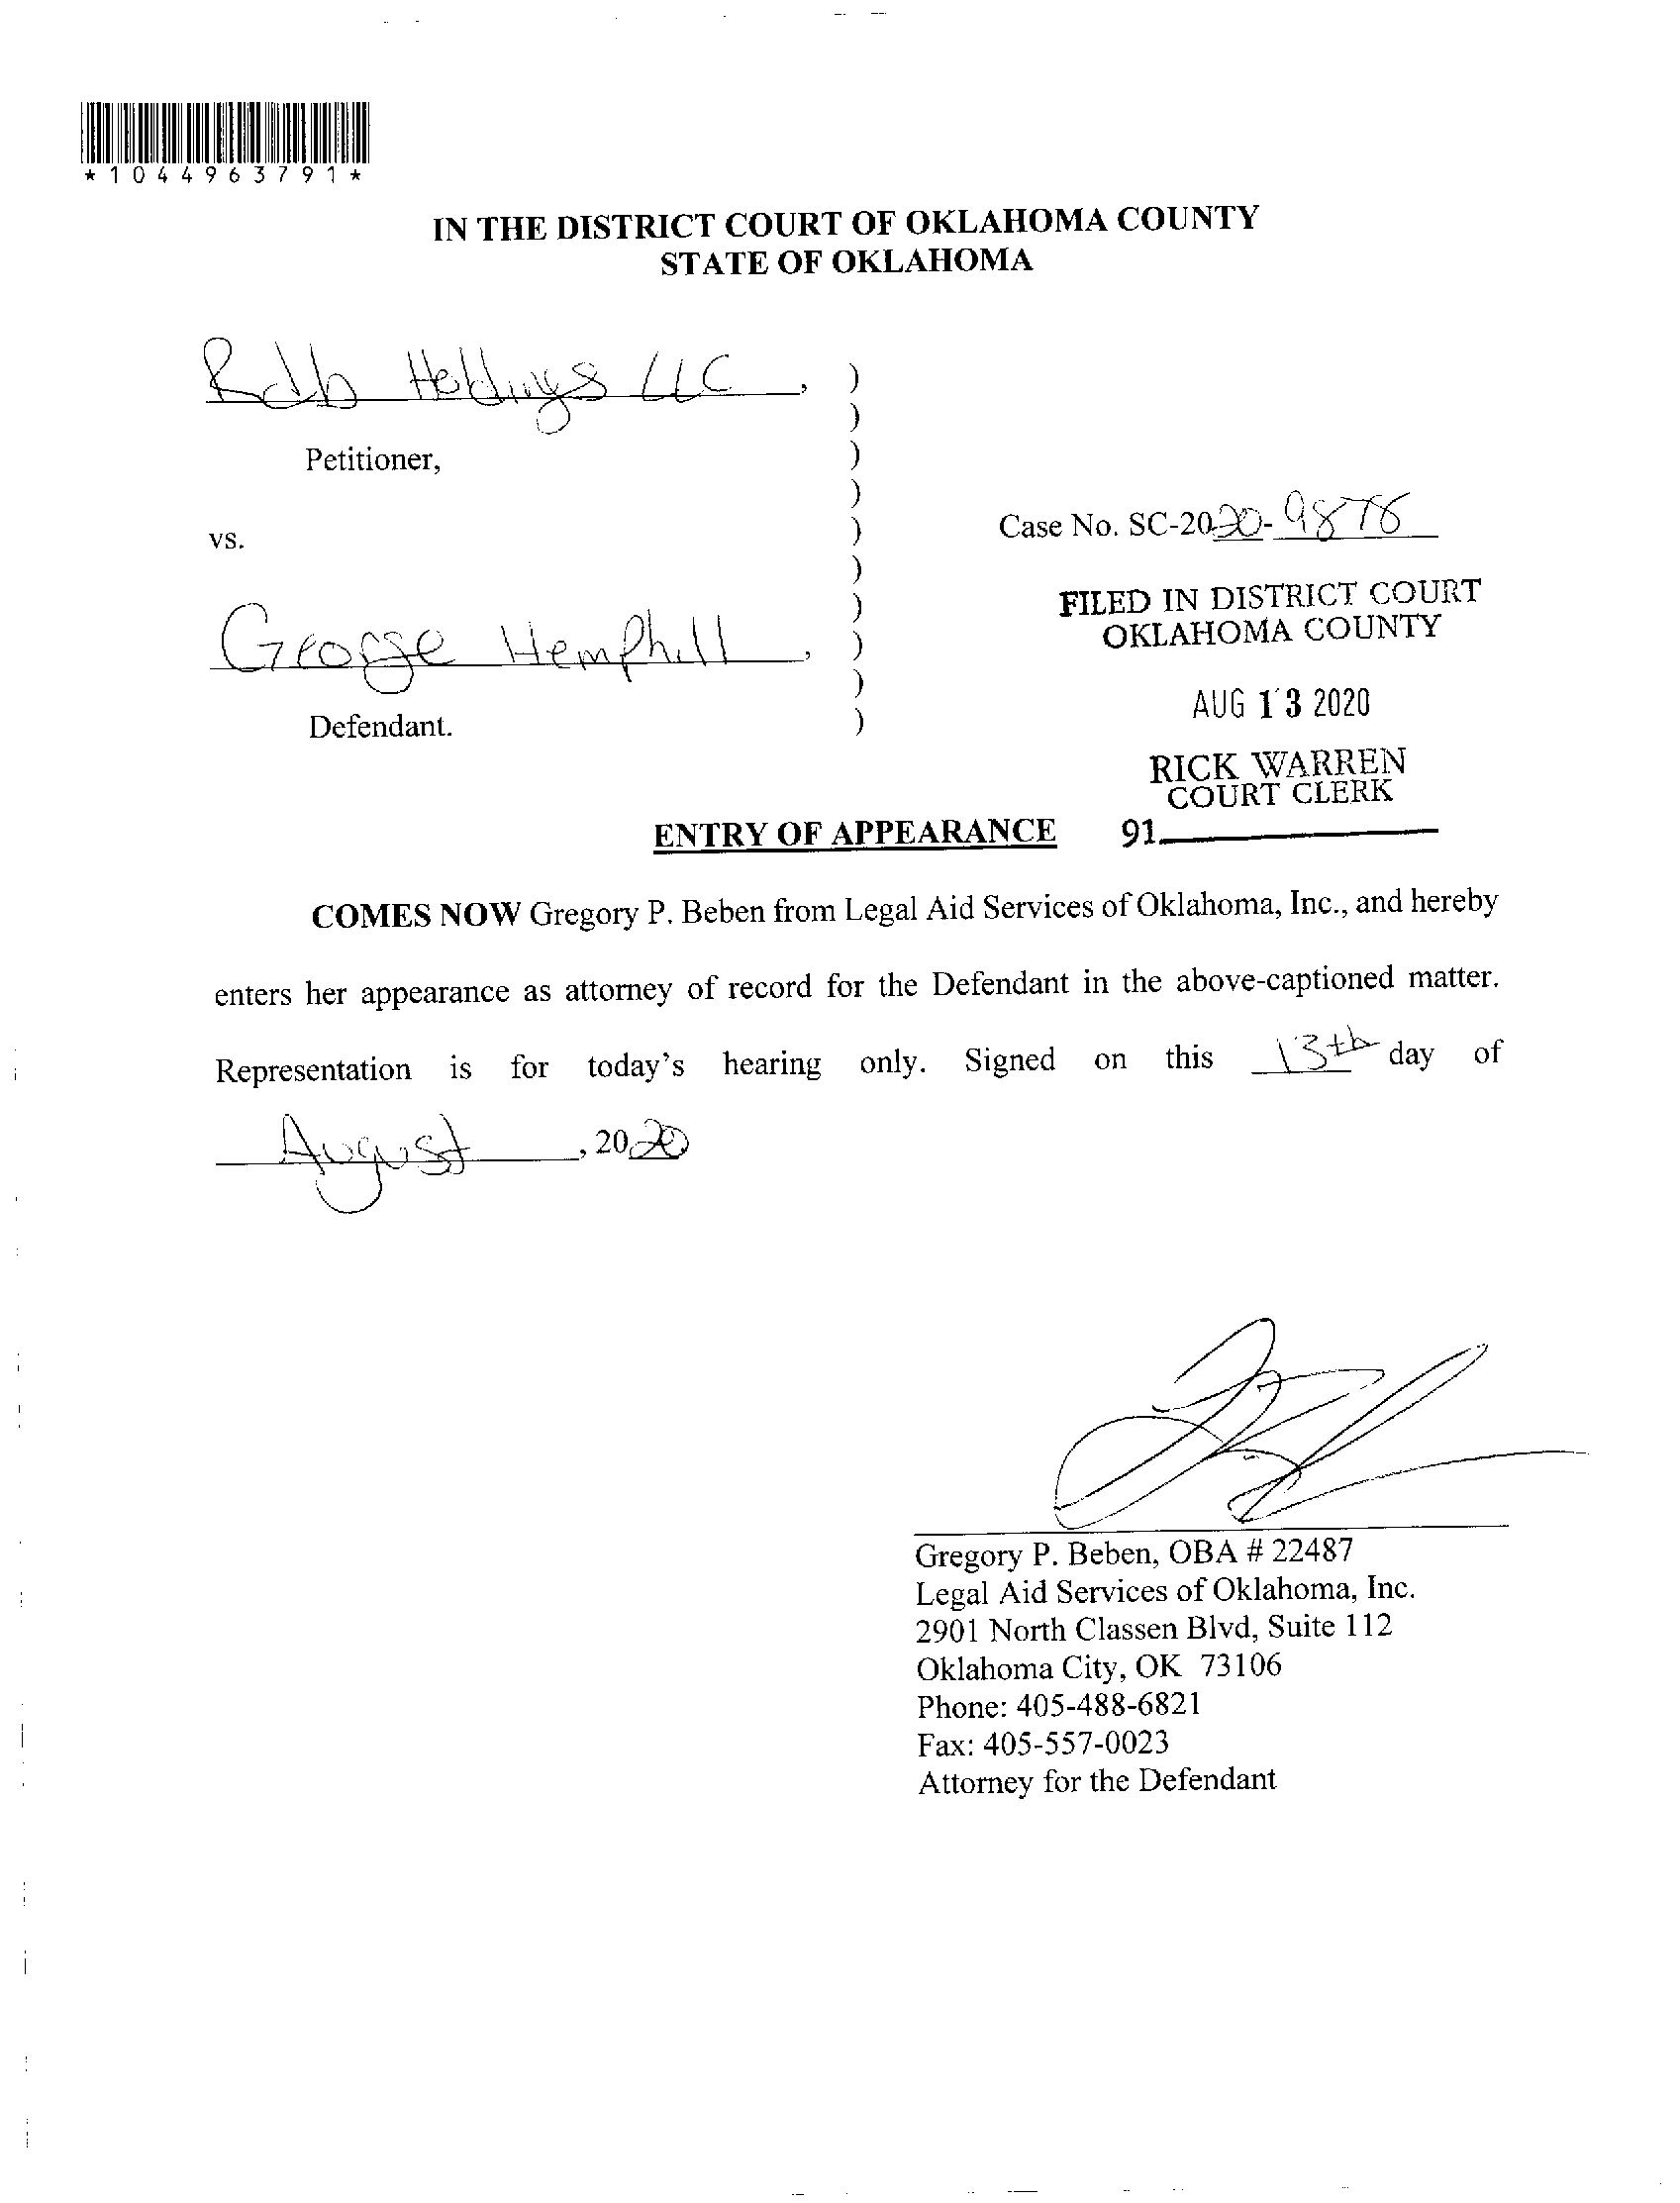 *1044963791*
IN THE DISTRICT COURT OF OKLAHOMA COUNTY
STATE OF OKLAHOMA
Rdb Holdings LLC, )
)
Petitioner, )
)
vs. ) Case No. SC-2020-9878
)
)
George Hemphill, )
)
Defendant. )
FILED IN DISTRICT COURT
OKLAHOMA COUNTY
AUG 13 2020
RICK WARREN
COURT CLERK
91
ENTRY OF APPEARANCE
COMES NOW Gregory P. Beben from Legal Aid Services of Oklahoma, Inc., and hereby
enters her appearance as attorney of record for the Defendant in the above-captioned matter.
Representation is for today's hearing only. Signed on this 13th day of
August, 2020
Gregory P. Beben, OBA # 22487
Legal Aid Services of Oklahoma, Inc.
2901 North Classen Blvd, Suite 112
Oklahoma City, OK 73106
Phone: 405-488-6821
Fax: 405-557-0023
Attorney for the Defendant